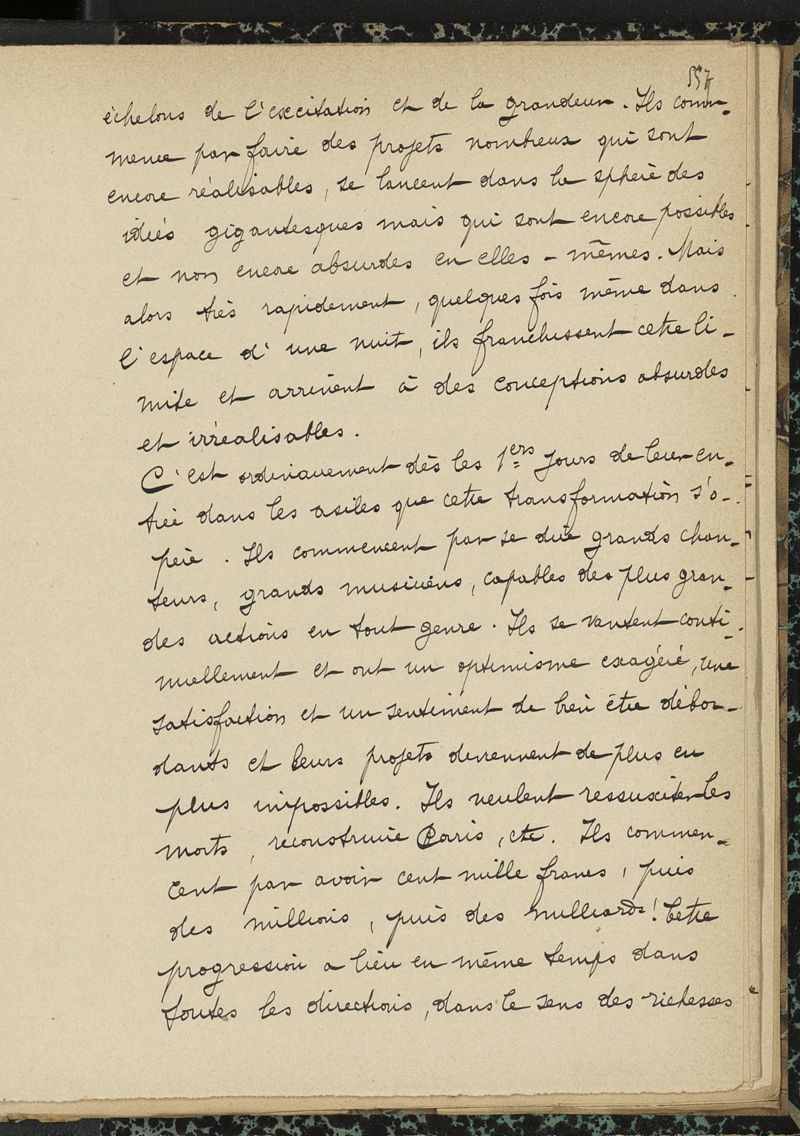 557
échelons de l'excitation et de la grandeur. Ils com-
mence par faire des projets nombreux qui sont
encore réalisables, se lancent dans la sphère des
idées gigantesques mais qui sont encore possibles
et non encore absurdes en elles-mêmes. Mais
alors très rapidement, quelques fois même dans
l'espace d'une nuit, ils franchissent cette li-
mite et arrivent à des conceptions absurdes
et irréalisables.
C'est ordinairement dès les 1ers jours de leur en-
trée dans les asiles que cette transformation s'o-
père. Ils commencent par se dire grands chan-
teurs, grands musiciens, capables des plus gran-
des actions en tout genre. Ils se vantent conti-
nuellement et ont un optimisme exagéré, une
satisfaction et un sentiment de bien être débor-
dants et leurs projets deviennent de plus en
plus impossibles. Ils veulent ressusciter les
morts, reconstruire Paris, etc. Ils commen-
cent par avoir cent mille francs, puis
des millions, puis des milliards! Cette
progression a lieu en même temps dans
toutes les directions, dans le sens des richesses